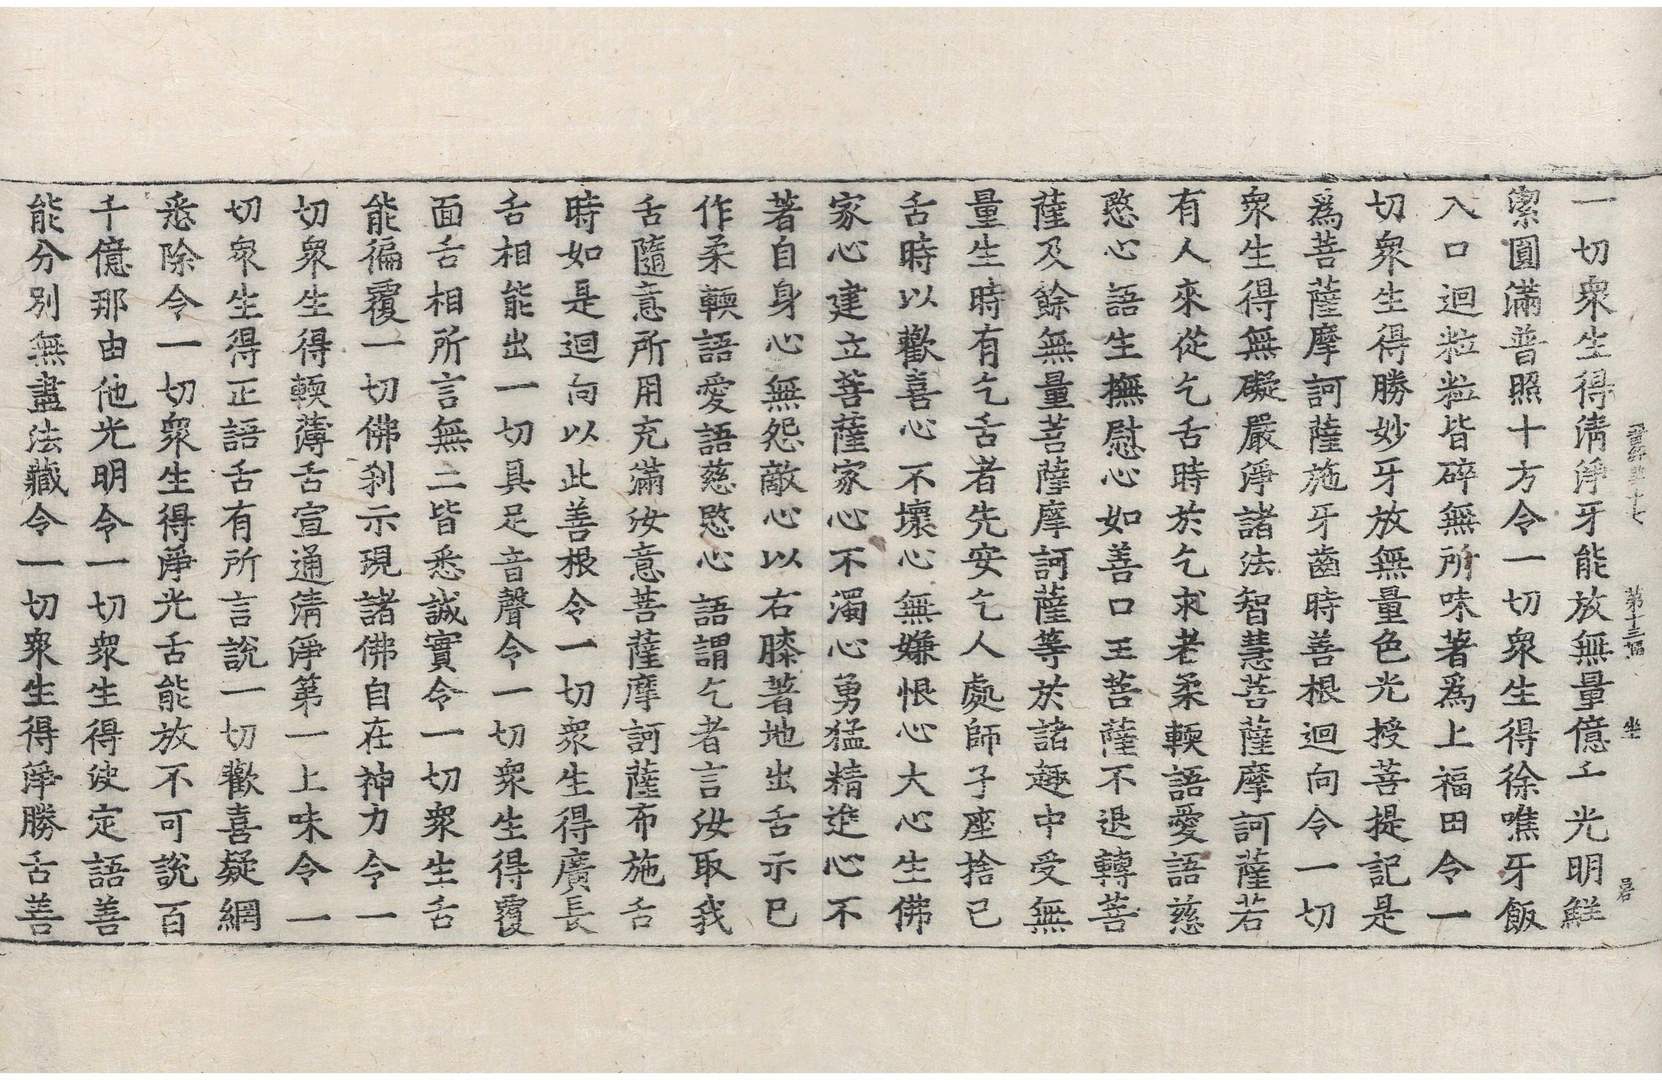 晉經第十七 第十三幅 坐
一切衆生得清淨牙能放無量億千光明鮮
潔圓滿普照十方令一切衆生得徐嚼牙飯
入口迴粒粒皆碎無所味著爲上福田令一
切衆生得勝妙牙放無量色光授菩提記是
爲菩薩摩訶薩施牙齒時善根迴向令一切
衆生得無礙嚴淨諸法智慧菩薩摩訶薩若
有人來從乞舌時於乞求者柔輭語愛語慈
愍心語生撫慰心如善口王菩薩不退轉菩
薩及餘無量菩薩摩訶薩等於諸趣中受無
量生時有乞舌者先安乞人處師子座捨己
舌時以歡喜心不壞心無嫌恨心大心生佛
家心建立菩薩家心不濁心勇猛精進心不
著自身心無怨敵心以右膝著地出舌示已
作柔輭語愛語慈愍心語謂乞者言汝取我
舌隨意所用充滿汝意菩薩摩訶薩布施舌
時如是迴向以此善根令一切衆生得廣長
舌相能出一切具足音聲令一切衆生得覆
面舌相所言無二皆悉誠實令一切衆生舌
能徧覆一切佛刹示現諸佛自在神力令一
切衆生得輭薄舌宣通清淨第一上味令一
切衆生得正語舌有所言說一切歡喜疑網
悉除令一切衆生得淨光舌能放不可說百
千億那由他光明令一切衆生得決定語善
能分別無盡法藏令一切衆生得淨勝舌善